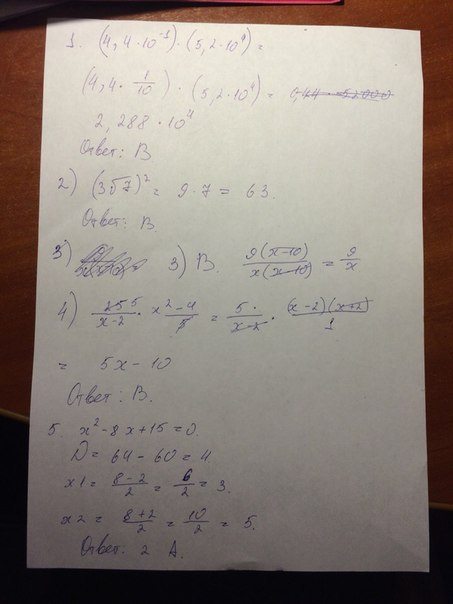 1. (4,4 · 10⁻¹) · (5,2 · 10⁴) =
(4,4 · 1/10) · (5,2 · 10⁴) =
2,288 · 10⁴
Ответ: В
2) (3√7)² = 9 · 7 = 63.
Ответ: В.
3) 3) В. 9(x-10)/x(x-10) = 9/x
4) 25 5/x-2 · x²-4/5 = 5·/x-2 · (x-2)(x+2)/1
= 5x-10
Ответ: В.
5. x²-8x+15=0.
D = 64-60=4
x1 = 8-2/2 = 6/2 = 3.
x2 = 8+2/2 = 10/2 = 5.
Ответ: 2 А.